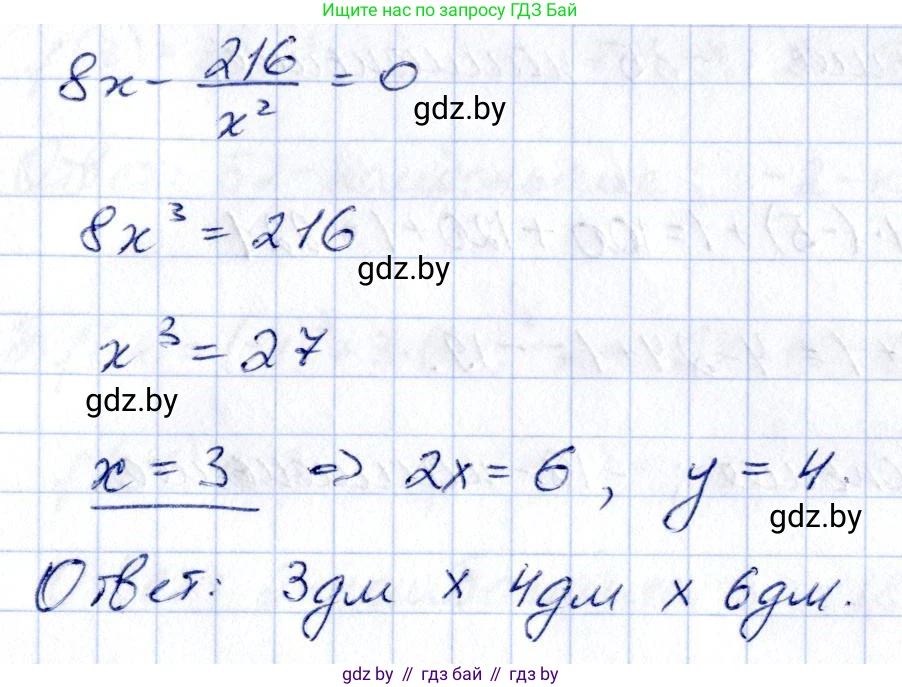 Ищите нас по запросу ГДЗ Бай
8x - 216/x² = 0
gdz.by
8x³ = 216
gdz.by
x³ = 27
gdz.by
x = 3 ⇒ 2x = 6, y = 4.
gdz.by
Ответ: 3дм x 4дм x 6дм.
gdz.by // гдз бай // гдз by